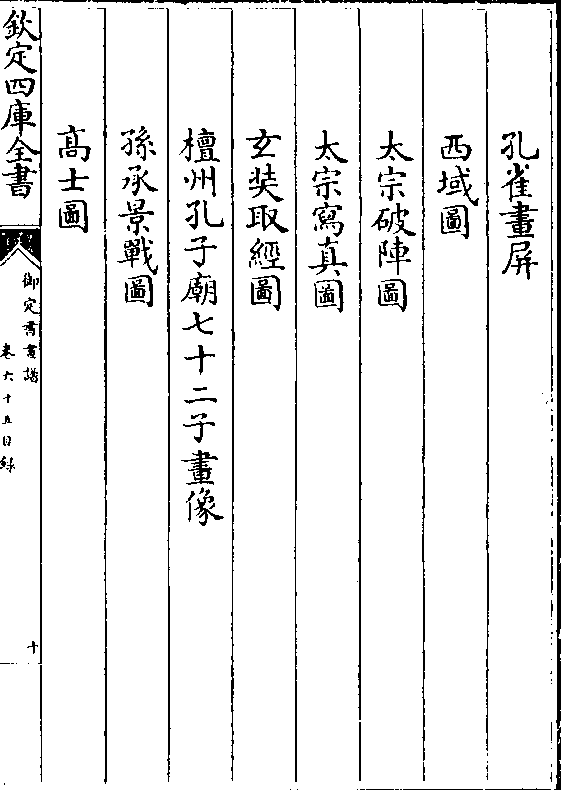 孔雀畫屏
西域圖
太宗破陣圖
太宗寫真圖
玄奘取經圖
檀州孔子廟七十二子畫像
孫承景戰圖
高士圖
欽定四庫全書
御定書畫譜
卷六十五目錄
十